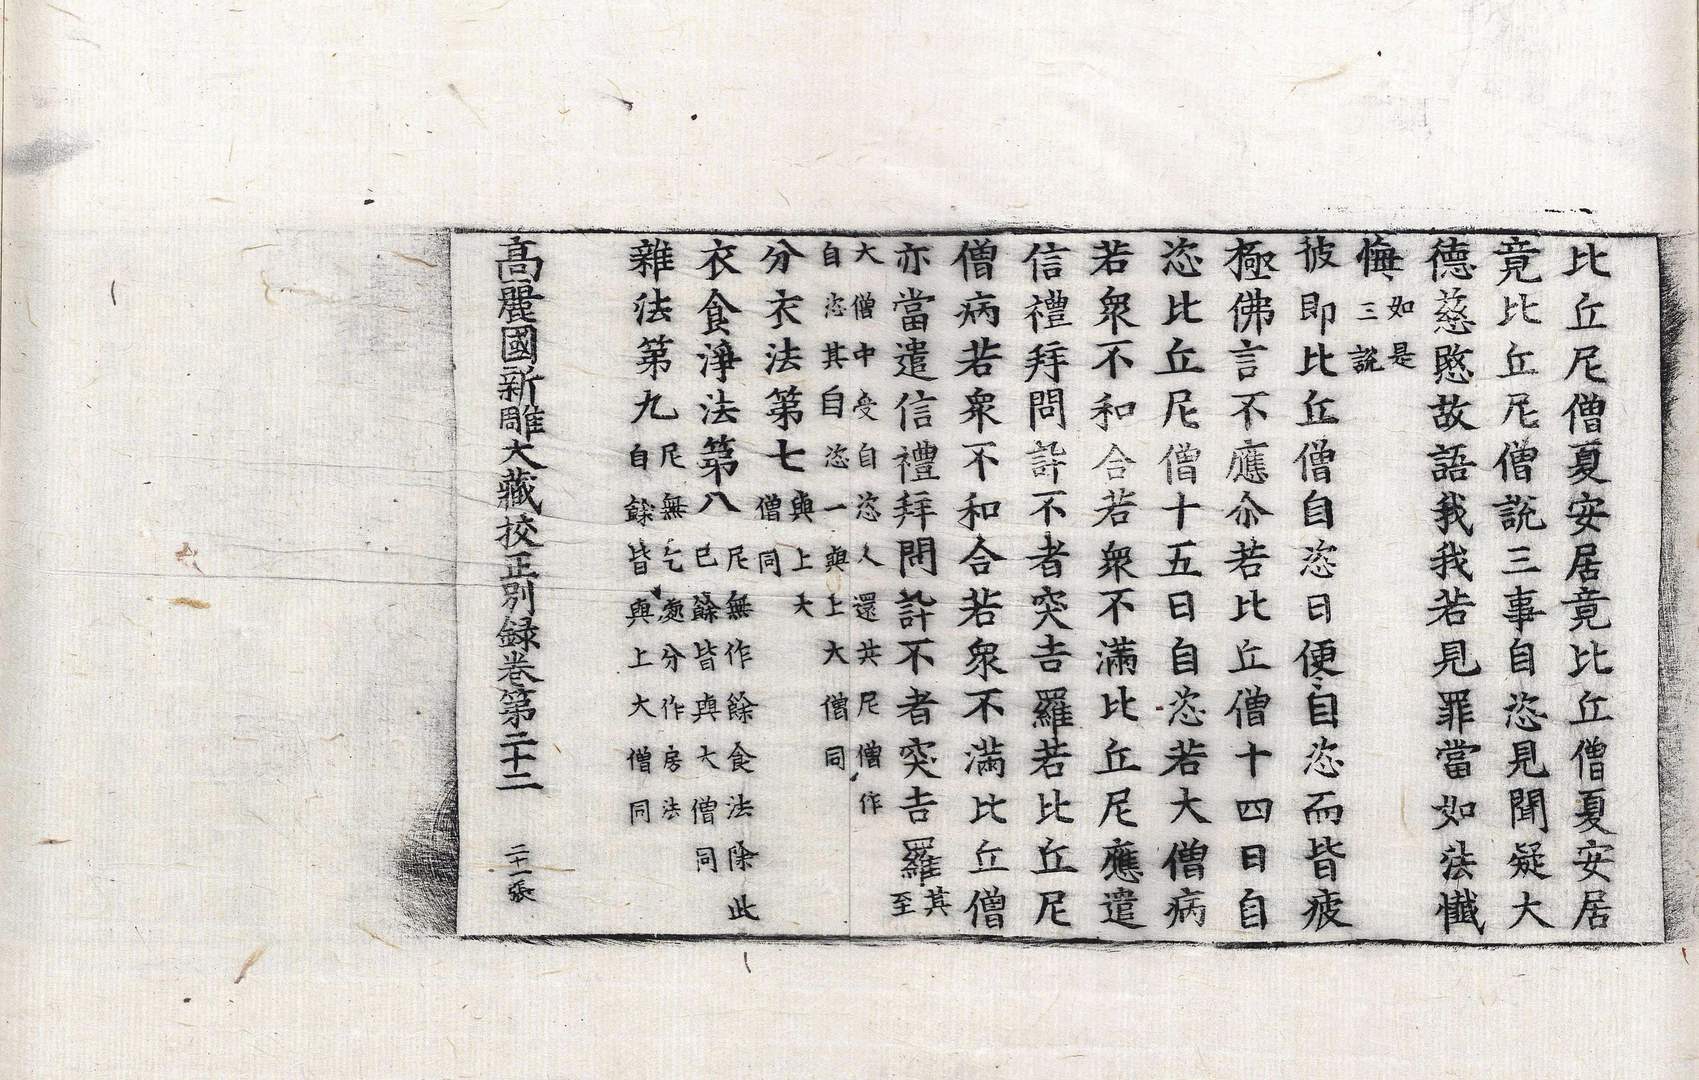 比丘尼僧夏安居竟比丘僧夏安居
竟比丘尼僧說三事自恣見聞疑大
德慈愍故語我我若見罪當如法懺
悔如是三說
彼即比丘僧自恣日便自恣而皆疲
極佛言不應尒若比丘僧十四日自
恣比丘尼僧十五日自恣若大僧病
若衆不和合若衆不滿比丘尼應遣
信禮拜問訊不者突吉羅若比丘尼
僧病若衆不和合若衆不滿比丘僧
亦當遣信禮拜問訊不者突吉羅其至
大僧中受自恣人還共尼僧作
自恣其自恣一與上大僧同
分衣法第七與上大僧同
衣食淨法第八尼無作餘食法除此已餘皆與大僧同
雜法第九尼無乞處分作房法自餘皆與上大僧同
高麗國新雕大藏挍正別録卷第二十二 二十一張